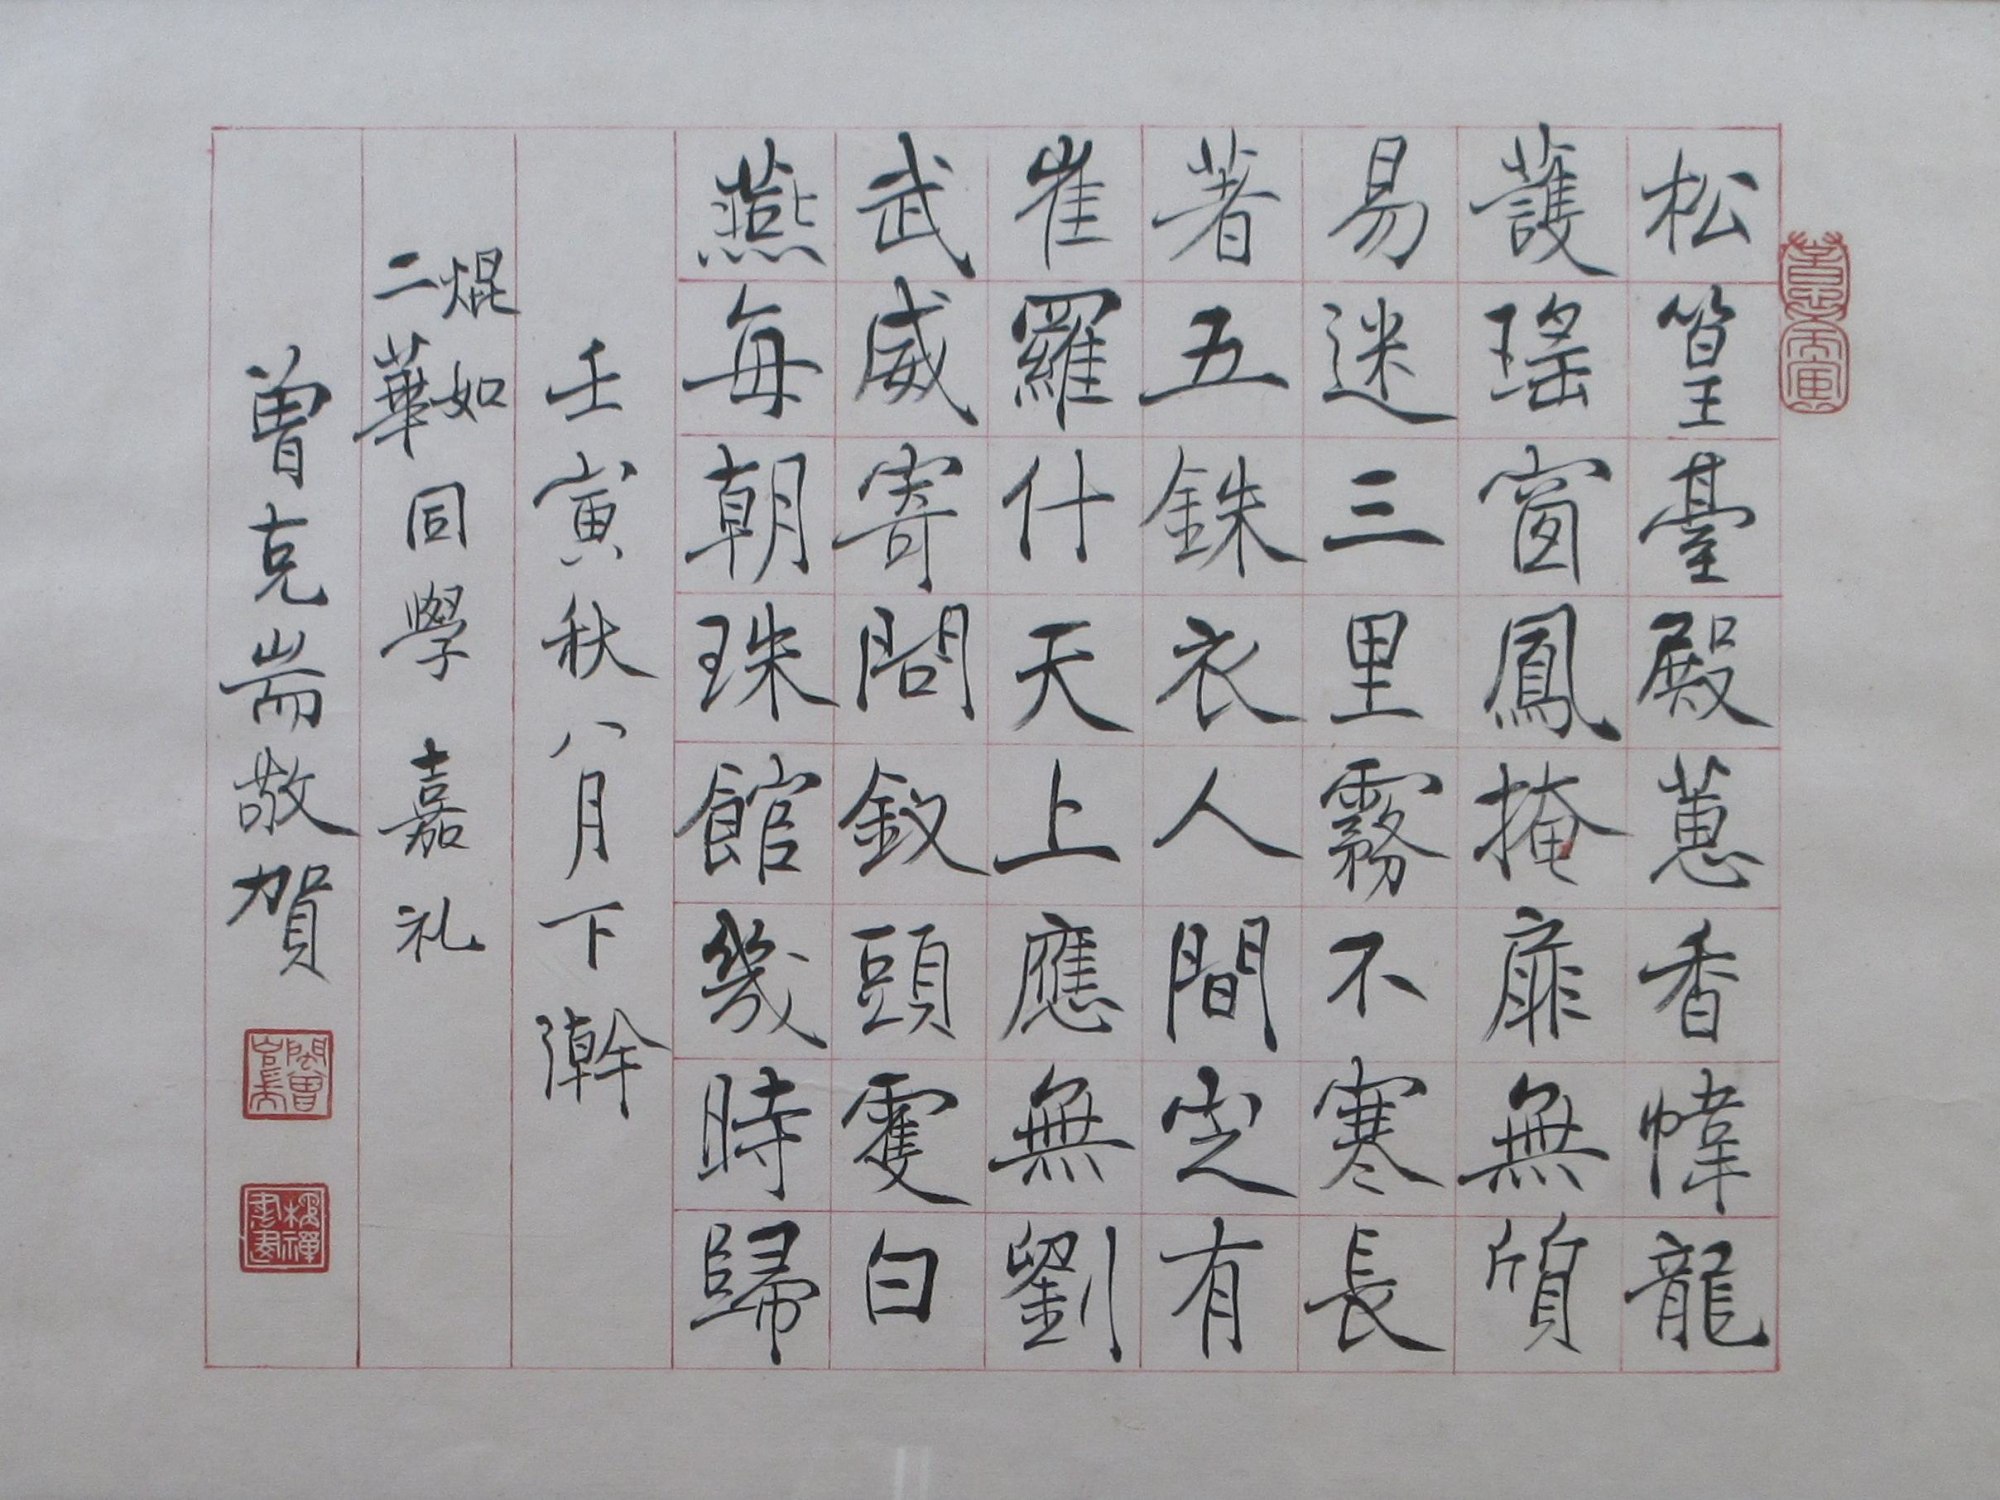 松篁臺殿蕙香幃龍
護瑤窗鳳掩扉無質
易迷三里霧不寒長
著五銖衣人間定有
崔羅什天上應無劉
武威寄問釵頭雙白
燕每朝珠館幾時歸
壬寅秋八月下澣
焜如
二華同學嘉礼
曾克耑敬賀